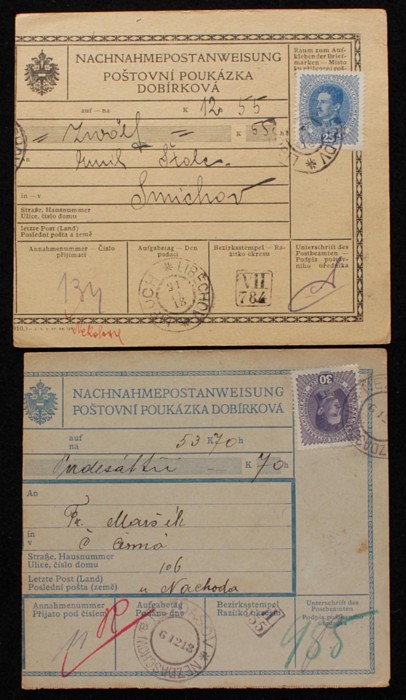 NACHNAHMEPOSTANWEISUNG
POŠTOVNÍ POUKÁZKA
DOBÍRKOVÁ
Raum zum Auf-
kleben der Brief-
marken
auf – na
K 12 55
Zwölf K 55
Emil Štolc
in – v
Smíchov
Straße, Hausnummer
Ulice, číslo domu
letzte Post (Land)
Poslední pošta a země
Annahmenummer – Číslo
přijímací
Aufgabstag – Den
podací
Bezirksstempel – Ra-
zítko okresní
Unterschrift des
Postbeamten –
Podpis poštov-
ního úředníka
LIBĚCHOV
VII
784
25
NACHNAHMEPOSTANWEISUNG
POŠTOVNÍ POUKÁZKA DOBÍRKOVÁ
auf
na
53 K 70 h
Padesáttři K 70 h
An
Fr. Maršík
in
v
Č Černá
Straße, Hausnummer
Ulice, číslo domu
106
Letzte Post (Land)
Poslední pošta (země)
u Náchoda
Annahmenummer
Přijato pod číslem
Aufgabstag
Podáno dne
Bezirksstempel
Razítko okresní
Unterschrift des
Postbeamten
Podpis
6 12 18
30